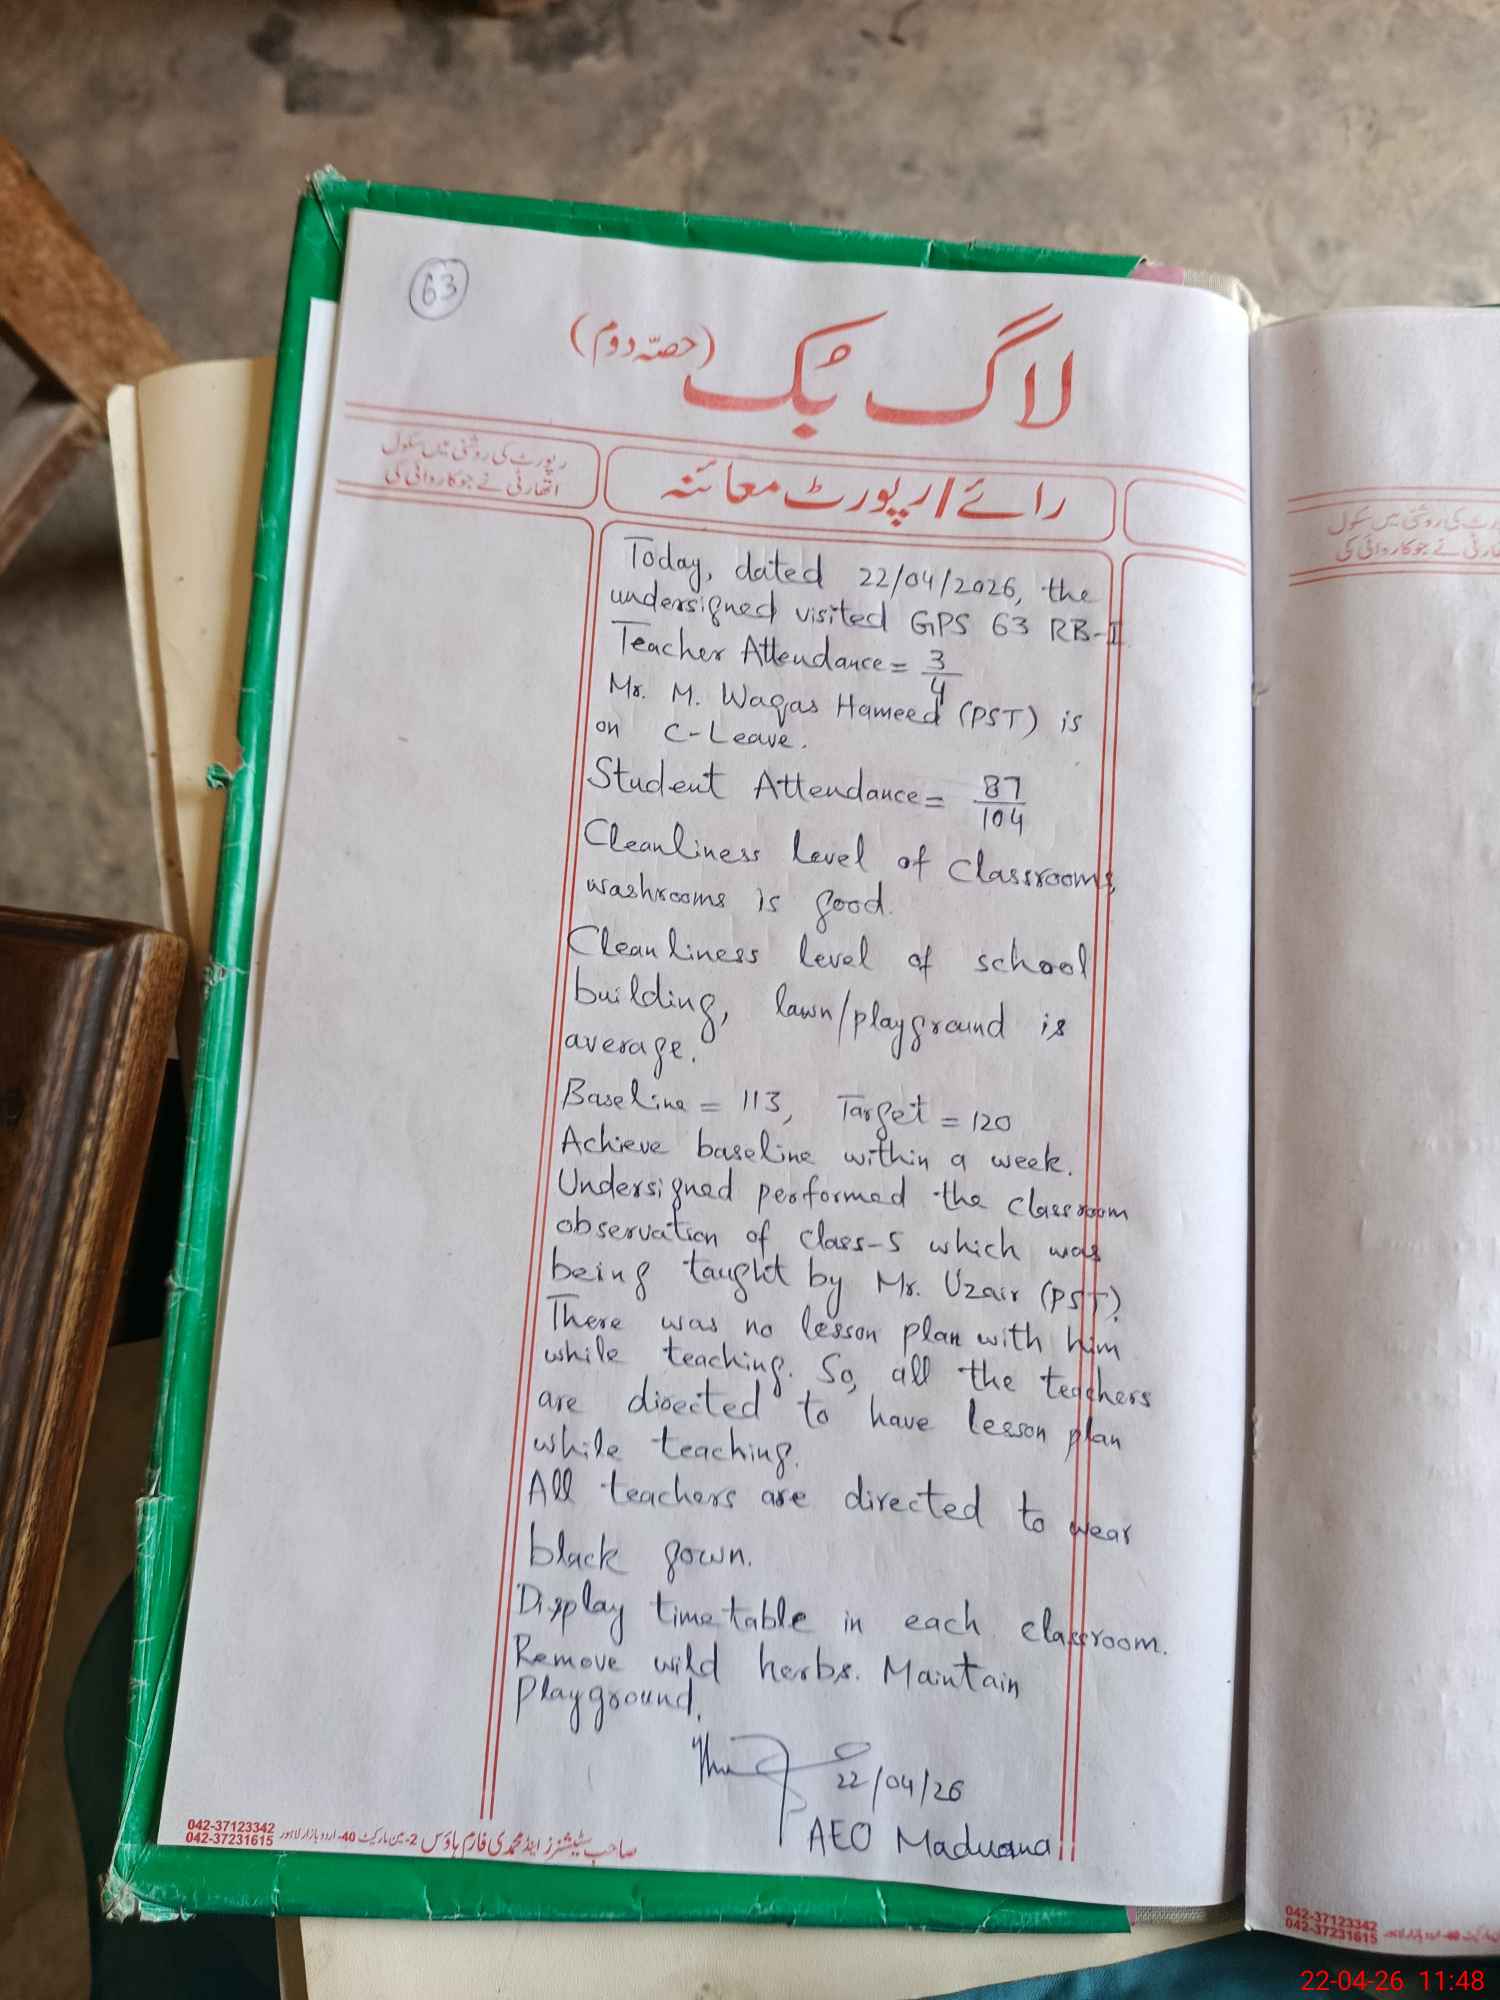 63
لاگ بک (حصّہ دوم)
رپورٹ کی روشنی میں سکول
اتھارٹی نے جو کاروائی کی
رائے / رپورٹ معائنہ
Today, dated 22/04/2026, the
undersigned visited GPS 63 RB-I
Teacher Attendance = 3/4
Mr. M. Waqas Hameed (PST) is
on C-Leave.
Student Attendance = 87/104
Cleanliness level of classrooms,
washrooms is good.
Cleanliness level of school
building, lawn/playground is
average.
Baseline = 113, Target = 120
Achieve baseline within a week.
Undersigned performed the classroom
observation of class-5 which was
being taught by Mr. Uzair (PST).
There was no lesson plan with him
while teaching. So, all the teachers
are directed to have lesson plan
while teaching.
All teachers are directed to wear
black gown.
Display timetable in each classroom.
Remove wild herbs. Maintain
Playground.
22/04/26
AEO Maduana
042-37123342
042-37231615
صاحب سٹیشنرز اینڈ محمدی فارم ہاؤس 2-مین مارکیٹ 40-اردو بازار لاہور
042-37123342
042-37231615
22-04-26 11:48